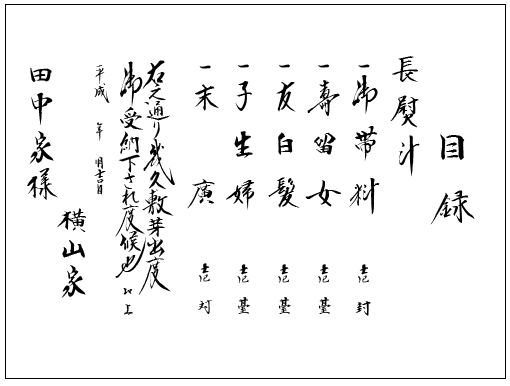 目録
長熨斗
一御帯料 壱封
一壽留女 壱臺
一友白髪 壱臺
一子生婦 壱臺
一末廣 壱対
右之通り幾久敷芽出度
御受納下され度候也 以上
平成 年 月吉日
横山家
田中家様